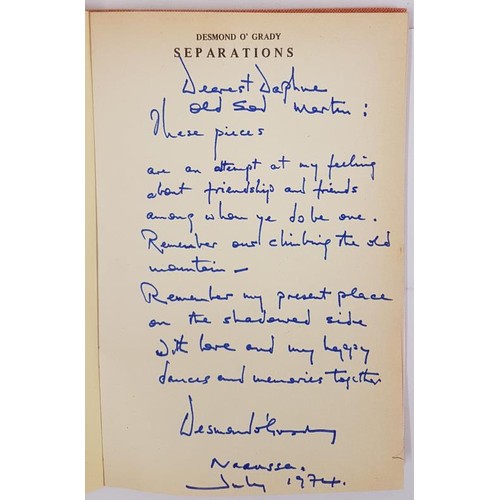 DESMOND O' GRADY
SEPARATIONS
Dearest Daphne
old Sod Martin:
These pieces
are an attempt at my feeling
about friendships and friends
among whom ye do be one.
Remember our climbing the old
mountain —
Remember my present place
on the shadowed side
With love and my happy
dances and memories together
Desmond O'Grady
Naoussa.
July 1974.